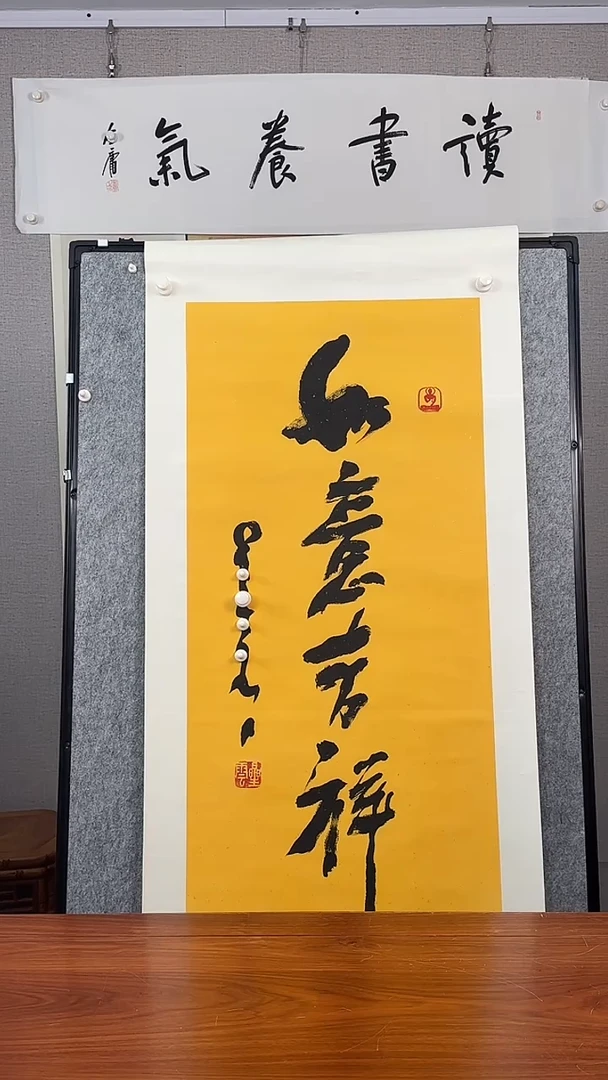 讀書養氣
如意吉祥
星雲